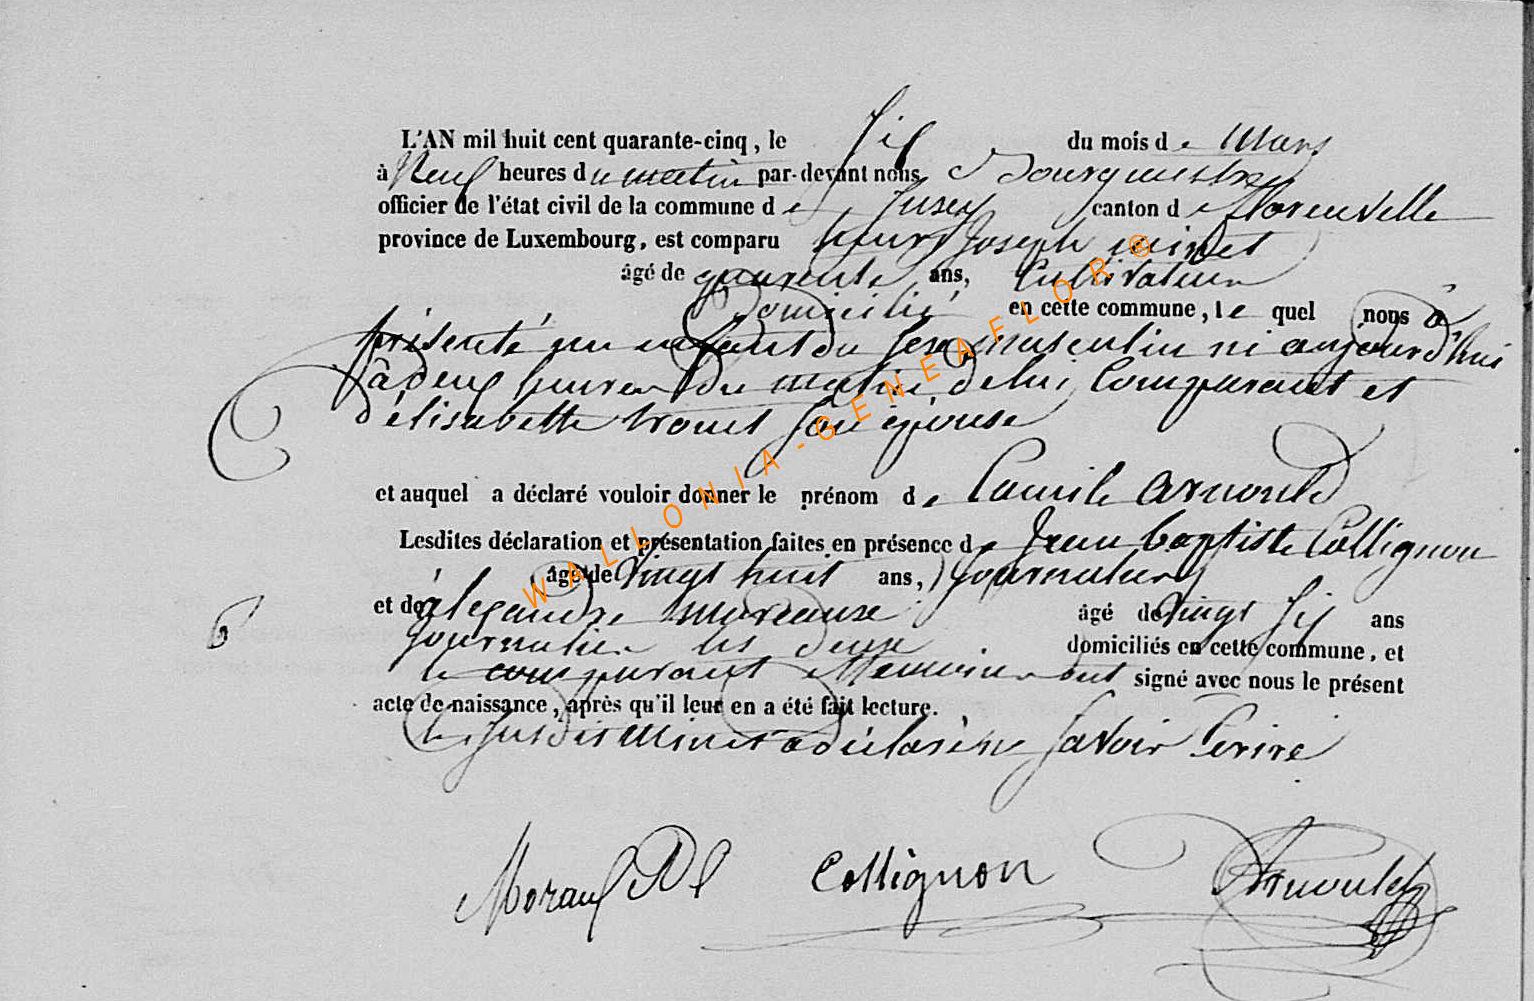 L'AN mil huit cent quarante-cinq, le six du mois de Mars
à Neuf heures du matin par-devant nous Bourgmestre
officier de l'état civil de la commune de canton de florenville
province de Luxembourg, est comparu henry Joseph minet
âgé de quarente ans, Cultivateur
Domicilié en cette commune, le quel nous a
présenté un enfant du sexe masculin né aujourd'hui
à deux heures du matin de lui Comparant et
d'élisabette son épouse
et auquel a déclaré vouloir donner le prénom de Camile arnould
Lesdites déclaration et présentation faites en présence de Jean baptiste Collignon
âgé de Vingt huit ans, Journalier
et de alexandre moreause âgé de Vingt six ans
Journalier les deux domiciliés en cette commune, et
le comparant témoins ont signé avec nous le présent
acte de naissance, après qu'il leur en a été fait lecture.
le susdit Minet a déclaré ne savoir Ecrire
6
Moraux Collignon Arnould
WALLONIA-GENEAFLOR®